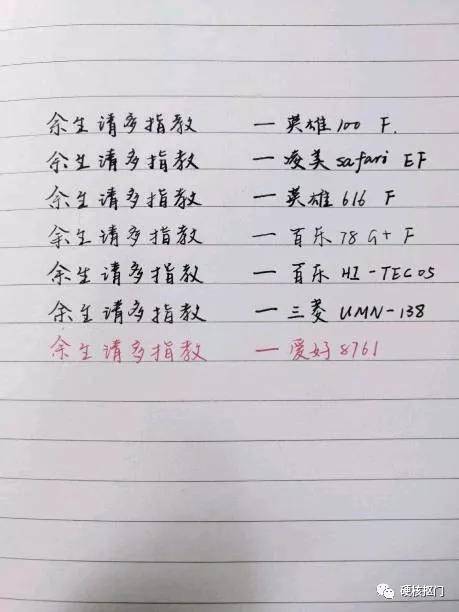 余生请多指教 一英雄100 F.
余生请多指教 一凌美safari EF
余生请多指教 一英雄616 F
余生请多指教 一百乐78G+ F
余生请多指教 一百乐HI-TEC05
余生请多指教 一三菱UMN-138
余生请多指教 一爱好8761
硬核抠门